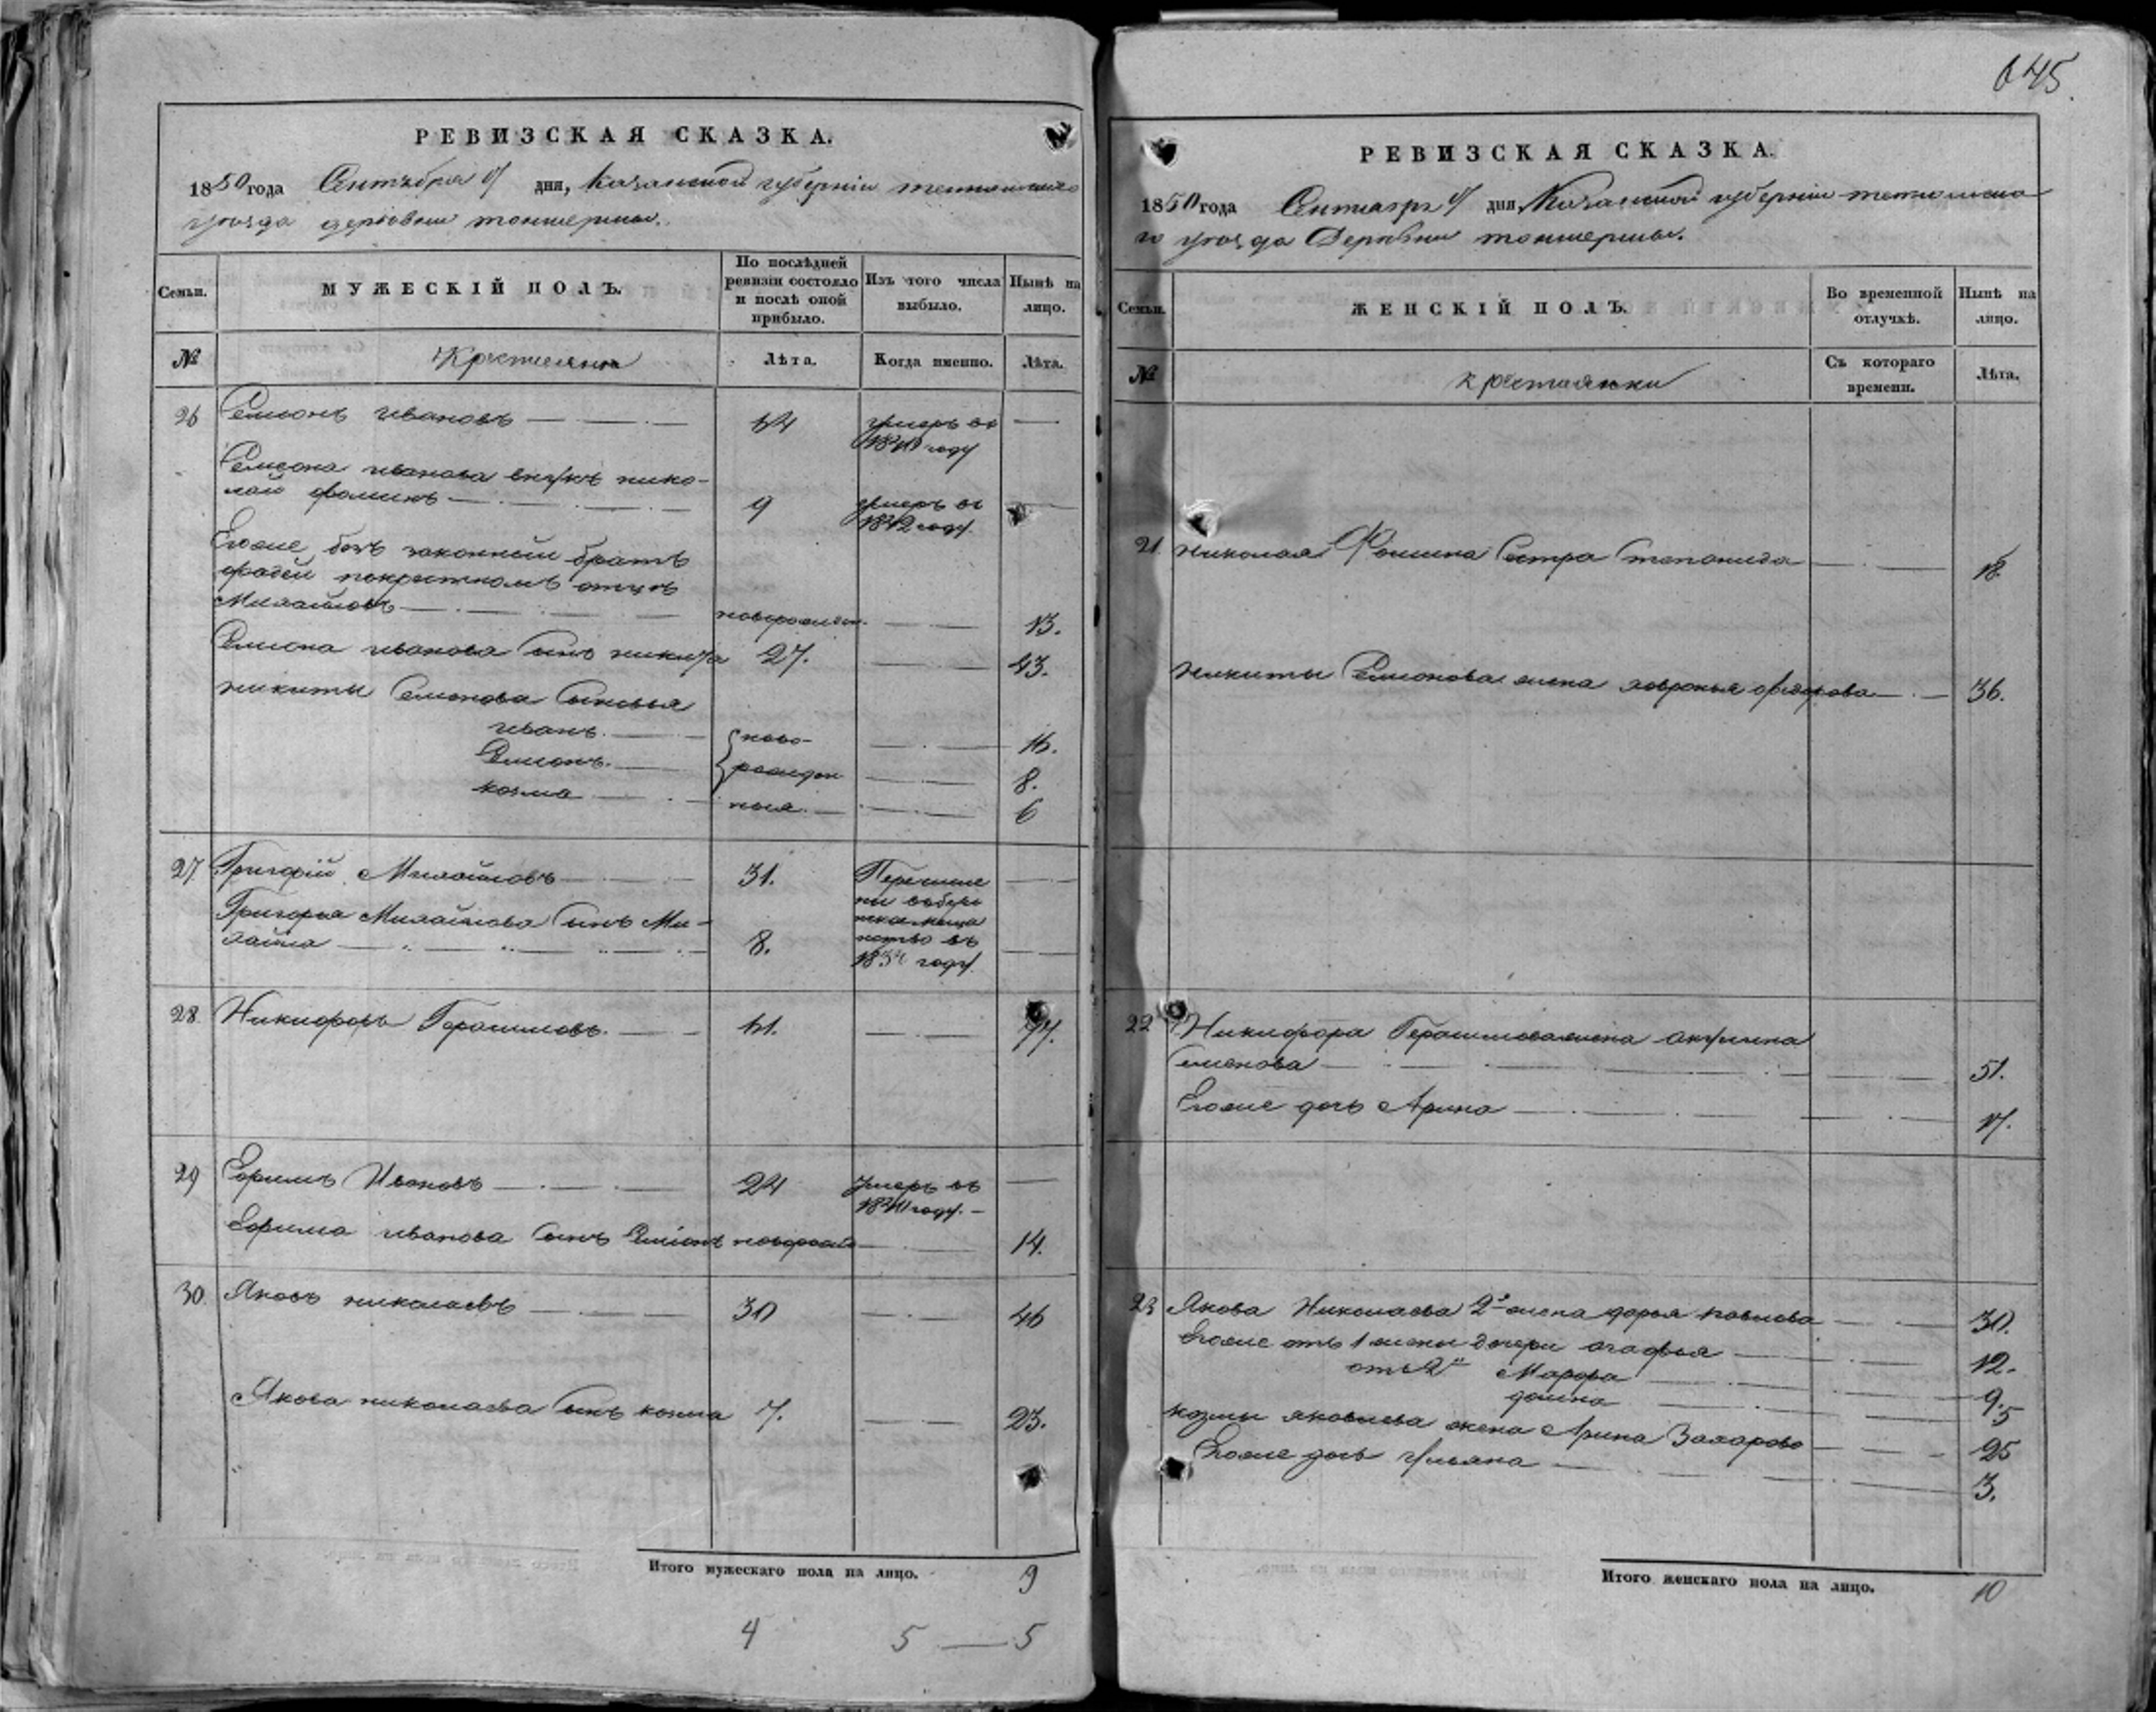 645.
РЕВИЗСКАЯ СКАЗКА.
1850 года Сентября 4 дня, Казанской губерніи
уезда деревни
Семьи.
МУЖЕСКІЙ ПОЛЪ.
По послѣдней ревизіи состояло и послѣ оной прибыло.
Изъ того числа выбыло.
Нынѣ на лицо.
№
Крестьяна
Лѣта.
Когда именно.
Лѣта.
26 Семионъ ивановъ — 64 умеръ въ
году
Семиона иванова внукъ нико-
лай фоминъ — 9 умеръ въ
1842 году.
Егоже без законный братъ
фадей покрестномъ отцѣ
Михайловъ — новорожден. — 13.
Семиона иванова сынъ никита 27. — 43.
никиты Семионова сыновья
иванъ. — ново- — 16.
Семионъ. — рожден — 8.
козма — ныя. — 6
27. Григорій Михайловъ — 31. Перечисле
ны
Григорья Михайлова сынъ Ми-
хайла — 8.
въ
году.
28. Никифоръ Герасимовъ. — 61. — 77.
29 Ефимъ Ивановъ — 24 Умеръ въ
году. —
Ефима иванова сынъ Семіонъ — 14.
30. Яковъ николаевъ — 30 — 46
Якова николаева сынъ козма 7. — 23.
Итого мужескаго пола на лицо. 9
4 5 — 5
РЕВИЗСКАЯ СКАЗКА.
1850 года 4 дня, Казанской губерніи
го уезда Деревни
Семьи.
ЖЕНСКІЙ ПОЛЪ.
Во временной отлучкѣ.
Нынѣ на лицо.
№
крестьянки
Съ котораго времени.
Лѣта.
21. николая Фомина Сестра степанида — 18.
никиты Семионова жена хавронья федорова — 36.
22 Никифора Герасимова жена акулина
Семенова — 51.
Егоже дочь Арина — 17.
23 Якова Николаева 2я жена дарья павлова — 30.
Егоже отъ 1 жены дочери агафья — 12.
отъ 2й Марфа — 9.
домна — 5
козмы яковлева жена Арина Захарова — 25
Егоже дочь ульяна — 3.
Итого женскаго пола на лицо. 10